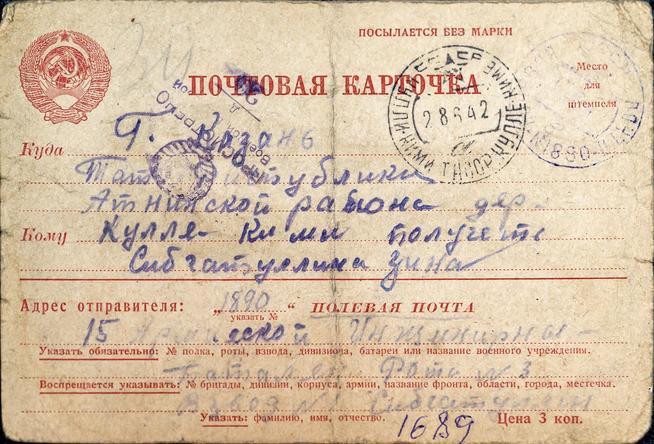 ПОСЫЛАЕТСЯ БЕЗ МАРКИ
ПОЧТОВАЯ КАРТОЧКА
Место
для
штемпеля
28 6 42
Куда Г. Казань
Республики
Атнинской района дер.
Кому Кулле-Кими получете
Сибгатуллина Зина
Адрес отправителя: „1890“ ПОЛЕВАЯ ПОЧТА
указать №
15 Инжинирны-
Указать обязательно: № полка, роты, взвода, дивизиона, батареи или название военного учреждения.
Рота №3
Воспрещается указывать: № бригады, дивизии, корпуса, армии, название фронта, области, города, местечка.
Взвод Сибгатуллин
Указать: фамилию, имя, отчество. 1689 Цена 3 коп.